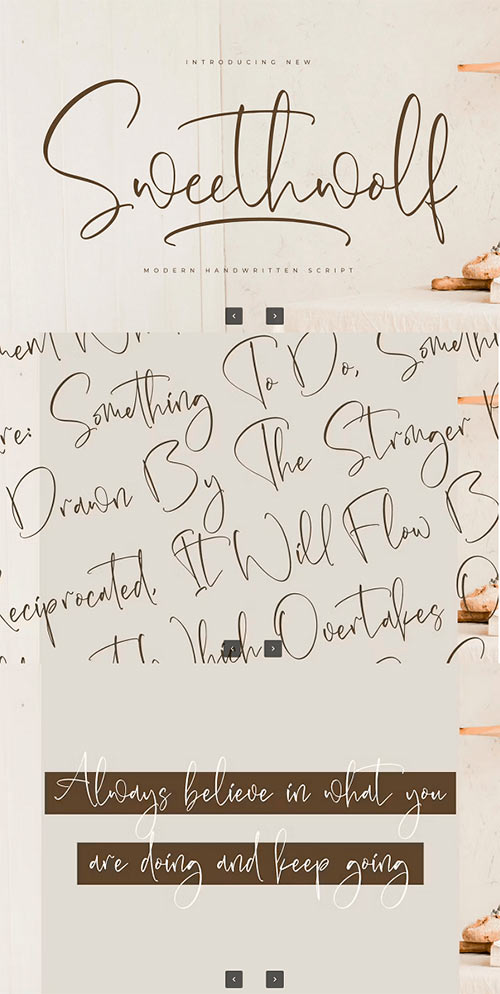 INTRODUCING NEW
Sweethwolf
MODERN HANDWRITTEN SCRIPT
Something To Do, Something
Drawn By The Stronger
Reciprocated, It Will Flow B
Which Overtakes O
Always believe in what you
are doing and keep going